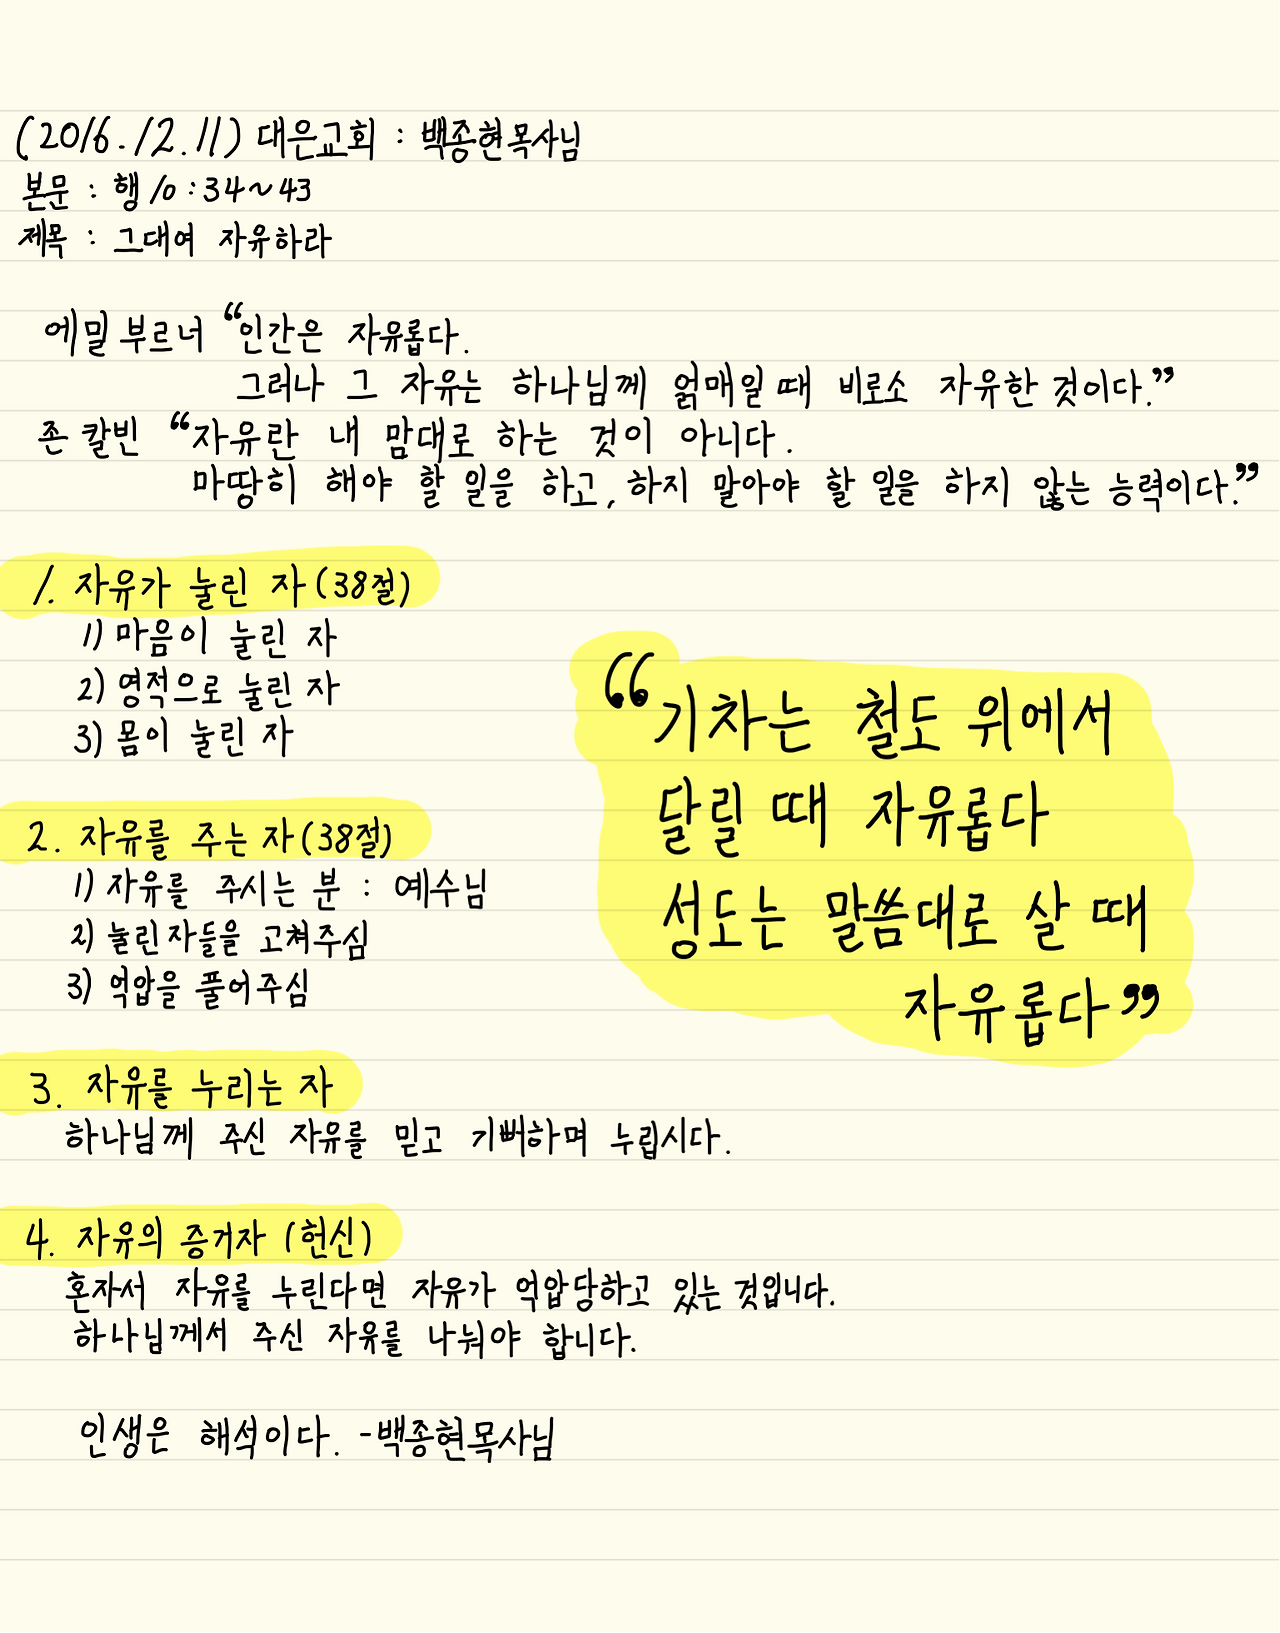 (2016.12.11) 대은교회 : 백종현목사님
본문 : 행 10 : 34~43
제목 : 그대여 자유하라
에밀 부르너 “인간은 자유롭다.
그러나 그 자유는 하나님께 얽매일 때 비로소 자유한 것이다.”
존 칼빈 “자유란 내 맘대로 하는 것이 아니다.
마땅히 해야 할 일을 하고, 하지 말아야 할 일을 하지 않는 능력이다.”
1. 자유가 눌린 자 (38절)
1) 마음이 눌린 자
2) 영적으로 눌린 자
3) 몸이 눌린 자
2. 자유를 주는 자 (38절)
1) 자유를 주시는 분 : 예수님
2) 눌린자들을 고쳐주심
3) 억압을 풀어주심
“기차는 철도 위에서
달릴 때 자유롭다
성도는 말씀대로 살 때
자유롭다”
3. 자유를 누리는 자
하나님께 주신 자유를 믿고 기뻐하며 누립시다.
4. 자유의 증거자 (헌신)
혼자서 자유를 누린다면 자유가 억압당하고 있는 것입니다.
하나님께서 주신 자유를 나눠야 합니다.
인생은 해석이다. -백종현목사님